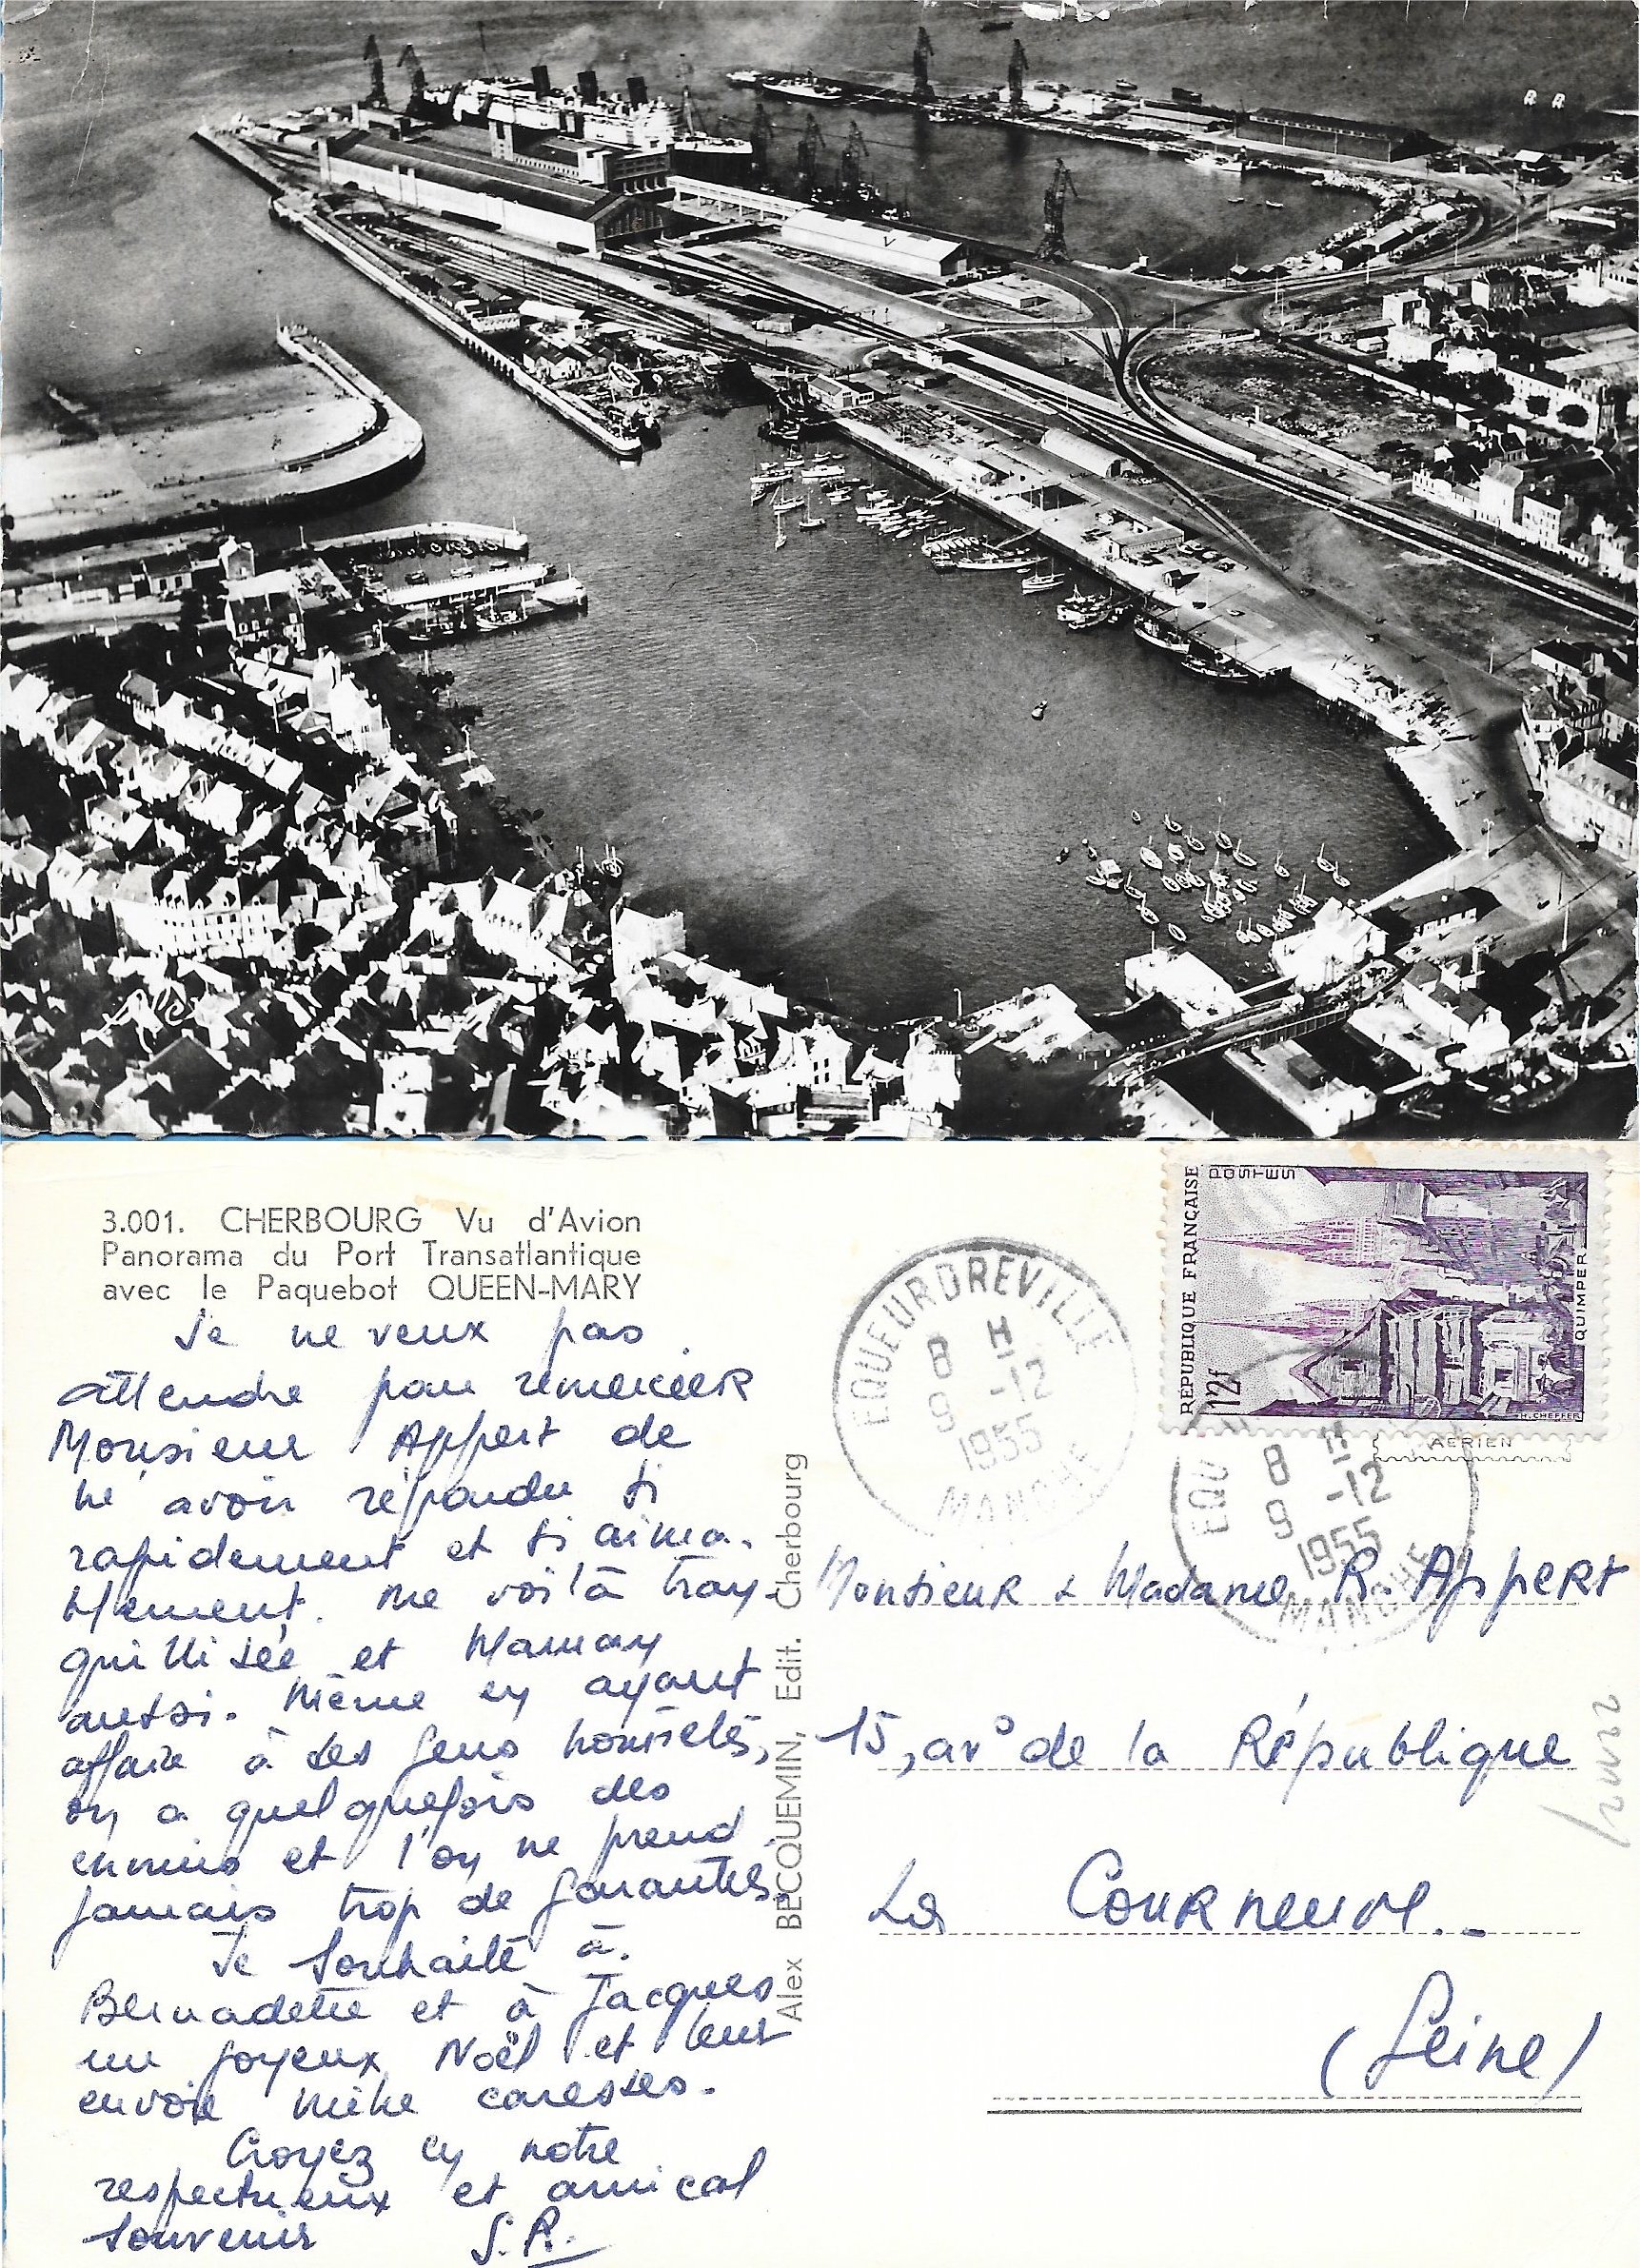 3.001. CHERBOURG Vu d'Avion
Panorama du Port Transatlantique
avec le Paquebot QUEEN-MARY
Je ne veux pas
attendre pour remercier
Monsieur Appert de
m'avoir répondu si
rapidement et si aima-
blement. Me voilà tran-
quillisée et Maman
aussi. Même en ayant
affaire à des gens honnêtes,
on a quelquefois des
ennuis et l'on ne prend
jamais trop de garanties.
Je souhaite à
Bernadette et à Jacques
un joyeux Noël et leur
envoie mille caresses.
Croyez en notre
respectueux et amical
souvenir S.R.
Alex BECQUEMIN, Edit. Cherbourg
EQUEURDREVILLE
8 H
9 -12
1955
MANCHE
RÉPUBLIQUE FRANÇAISE
POSTES
12f
QUIMPER
H. CHEFFER
AERIEN
EQU
8 H
9 -12
1955
MANCHE
Monsieur & Madame R. Appert
15, av^e de la République
La Courneuve.
(Seine)